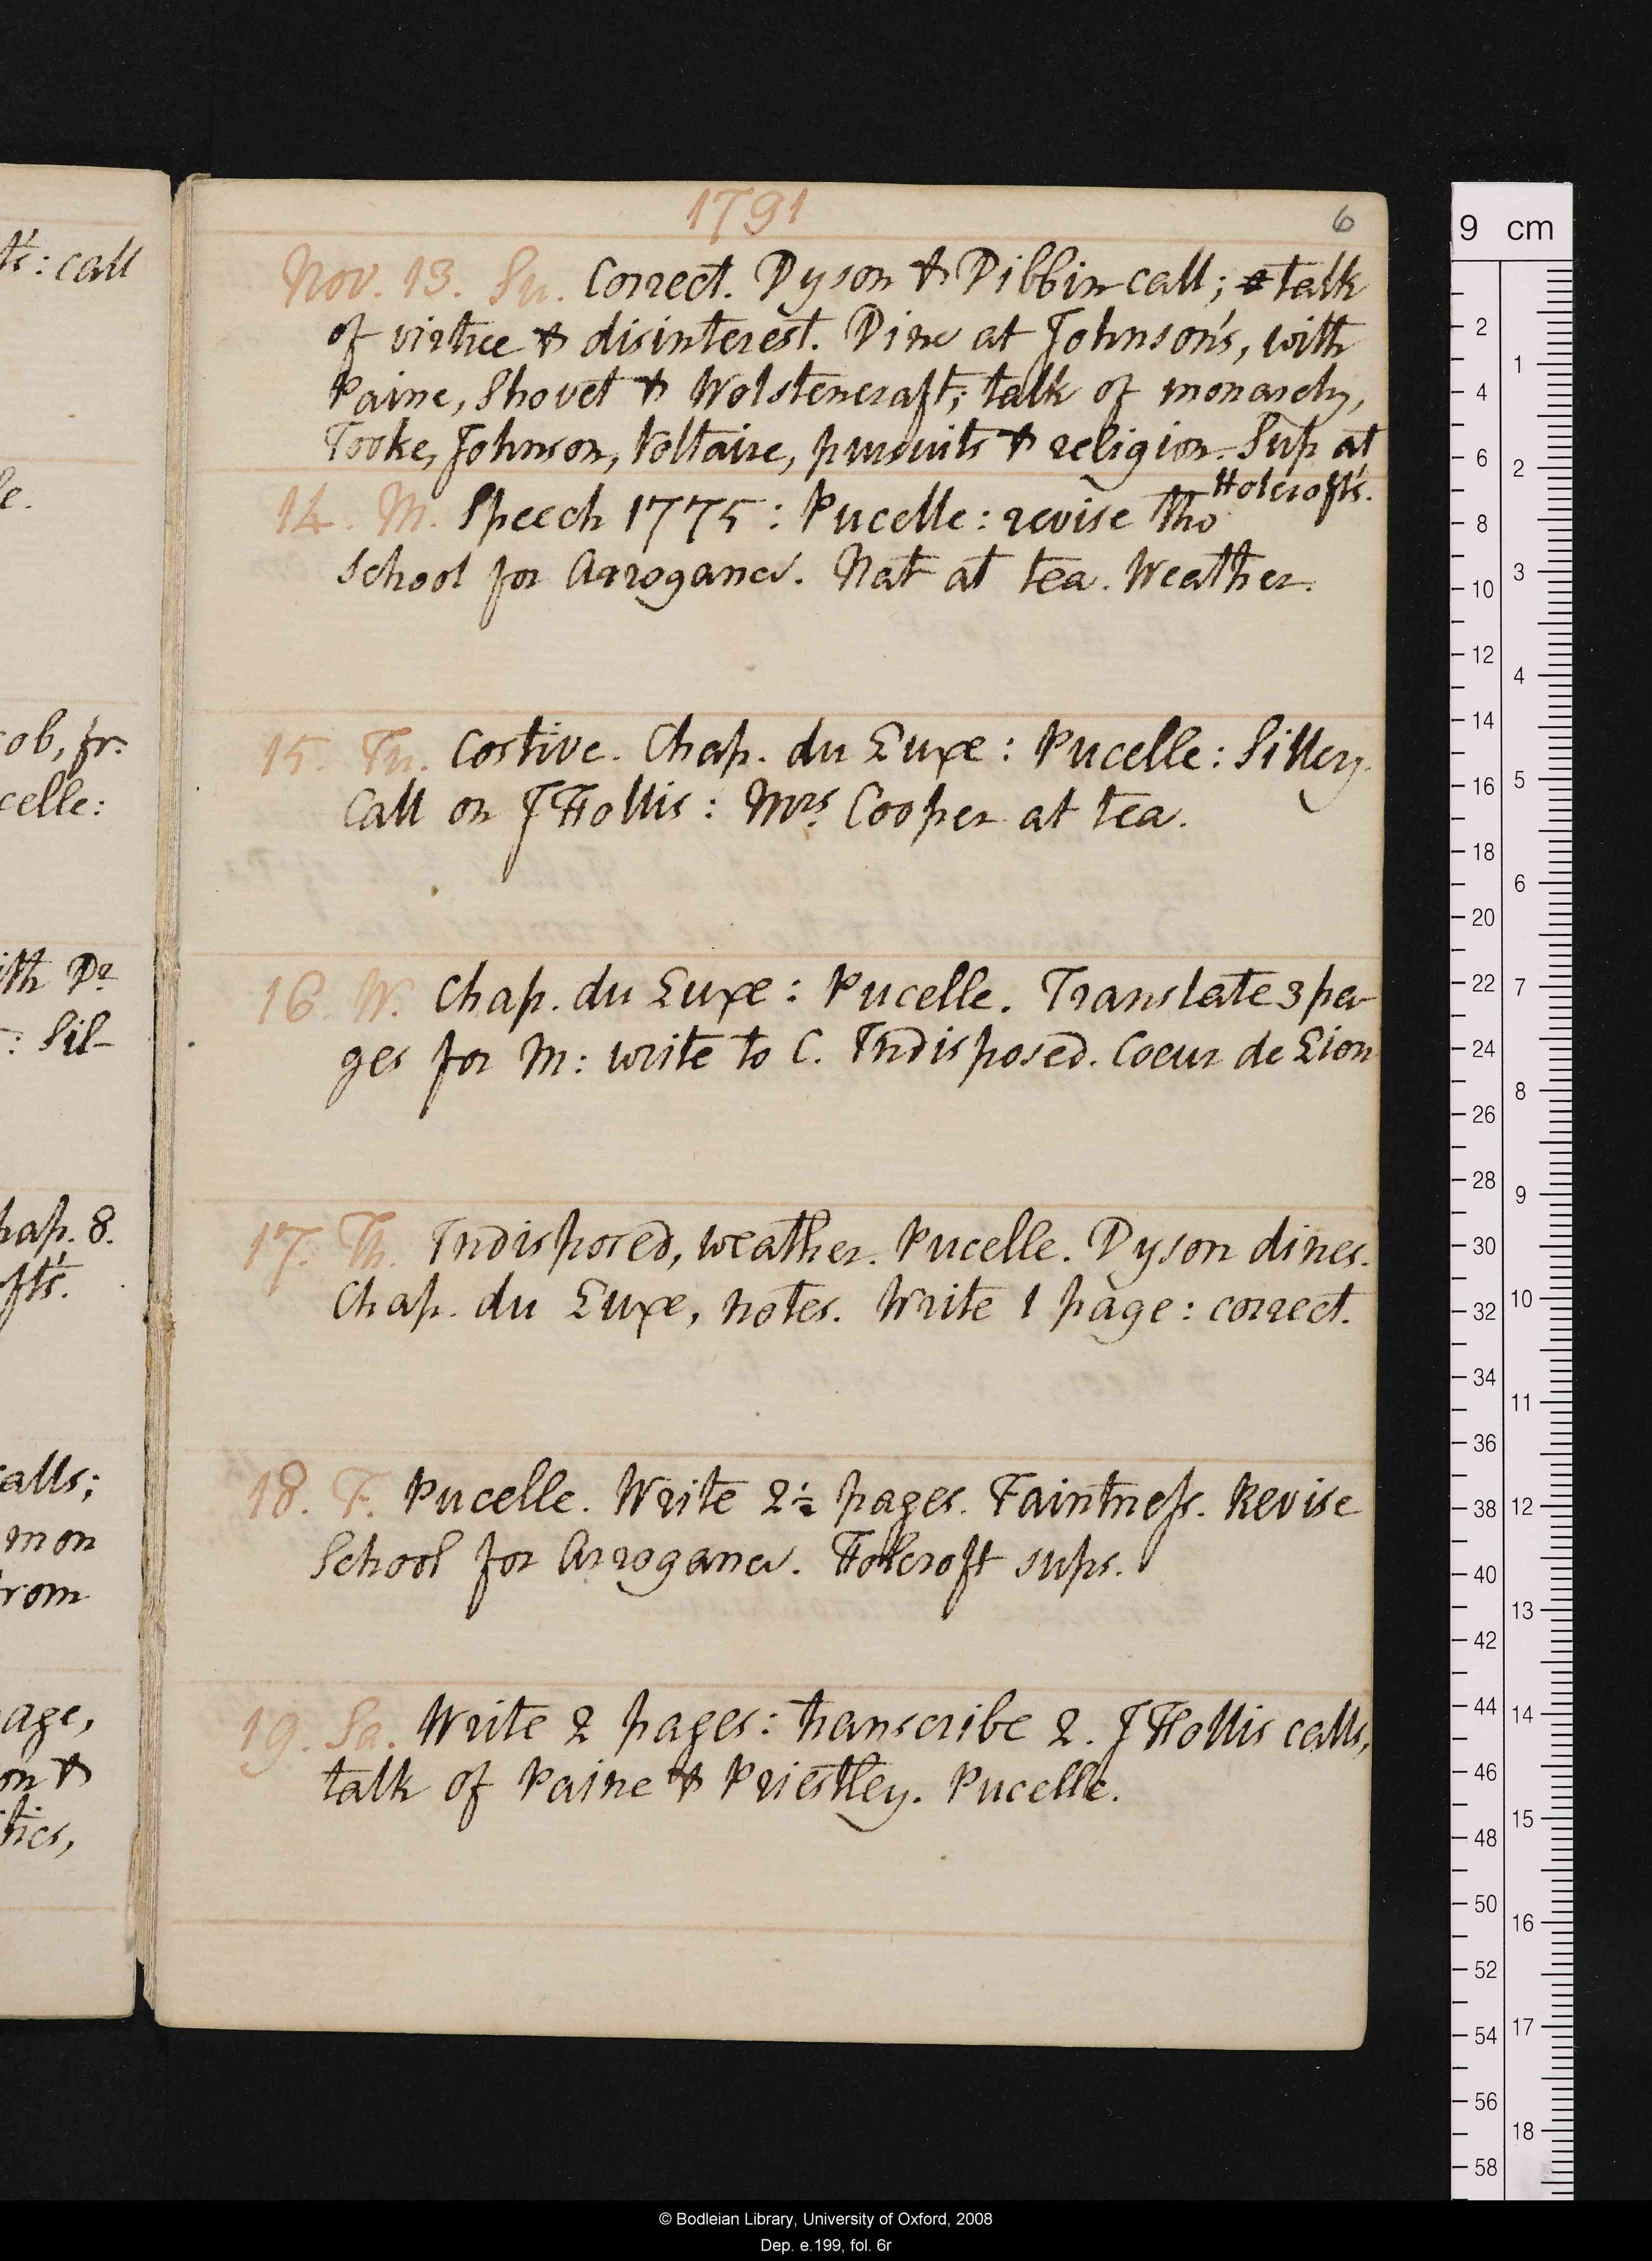 1791
6
Nov. 13. Su. Correct. Dyson & Dibbin call; talk
of virtue & disinterest. Dine at Johnson's, with
Paine, Shovet & Wolstencraft; talk of monarchy,
Tooke, Johnson, Voltaire, pursuits & religion. Sup at
Holcroft's.
14. M. Speech 1775: Pucelle: revise the
School for Arrogance. Nat at tea. Weather.
15. Tu. Costive. Chap. du Luxe: Pucelle: Sillery.
Call on J Hollis: Mrs Cooper at tea.
16. W. Chap. du Luxe: Pucelle. Translate 3 pa-
ges for M: write to C. Indisposed. Coeur de Lion
17. Th. Indisposed, weather. Pucelle. Dyson dines.
Chap. du Luxe, notes. Write 1 page: correct.
18. F. Pucelle. Write 2½ pages. Faintness. Revise
School for Arrogance. Holcroft sups.
19. Sa. Write 2 pages: transcribe 2. J Hollis calls,
talk of Paine & Priestley. Pucelle.
ts: call
le.
ob, fr.
celle:
ith Dr
: Sil-
hap. 8.
fts.
alls;
mon
rom
age,
on &
tics,
9 cm
2
4
6
8
10
12
14
16
18
20
22
24
26
28
30
32
34
36
38
40
42
44
46
48
50
52
54
56
58
1
2
3
4
5
6
7
8
9
10
11
12
13
14
15
16
17
18
© Bodleian Library, University of Oxford, 2008
Dep. e.199, fol. 6r